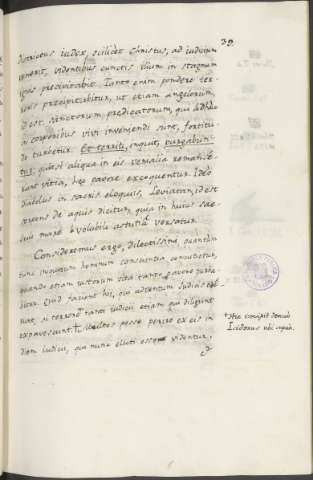 39.
districtus iudex, scilicet Christus, ad iudicium
venerit, videntibus cunctis illum in stagnum
ignis precipitabit. Tanto enim pondere ter-
roris precipitabitur, ut etiam angelorum,
id est, sanctorum predicatorum, qui adhuc
in corporibus vivi inveniendi sunt, fortitu-
do turbetur. Et territi, inquit, purgabun-
tur, quasi aliqua in eis venialia remanse-
rant vitia, hoc pavore excoquentur. Ideo
diabolus in sacris eloquiis, Leviatan, id est
serpens de aquis dicitur, quia in huius sae-
culi mare volubili astutia versatur.
Consideremus ergo, dilectissimi, quantum
tunc iniquorum hominum conscientia concutietur,
quando etiam iustorum vita tanto pavore turba-
bitur. Quid faciunt hi, qui adventum Iudicis
si terrorem tanti iudicii etiam qui diligunt
expavescunt. † Multos posse perire ex eis in
diem iudicii, qui nunc electi esse videntur,
et
† Hic incipit denuo
Isidorus ubi supra.